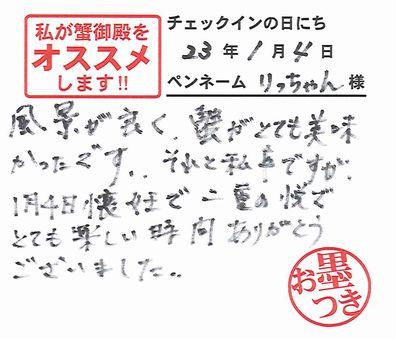 私が蟹御殿を
オススメ
します!!
チェックインの日にち
23年1月4日
ペンネーム りっちゃん 様
風景が良く、蟹がとても美味
かったです。それと私事ですが、
1月4日懐妊で二重の悦で
とても楽しい時間ありがとう
ございました。
お墨
つき